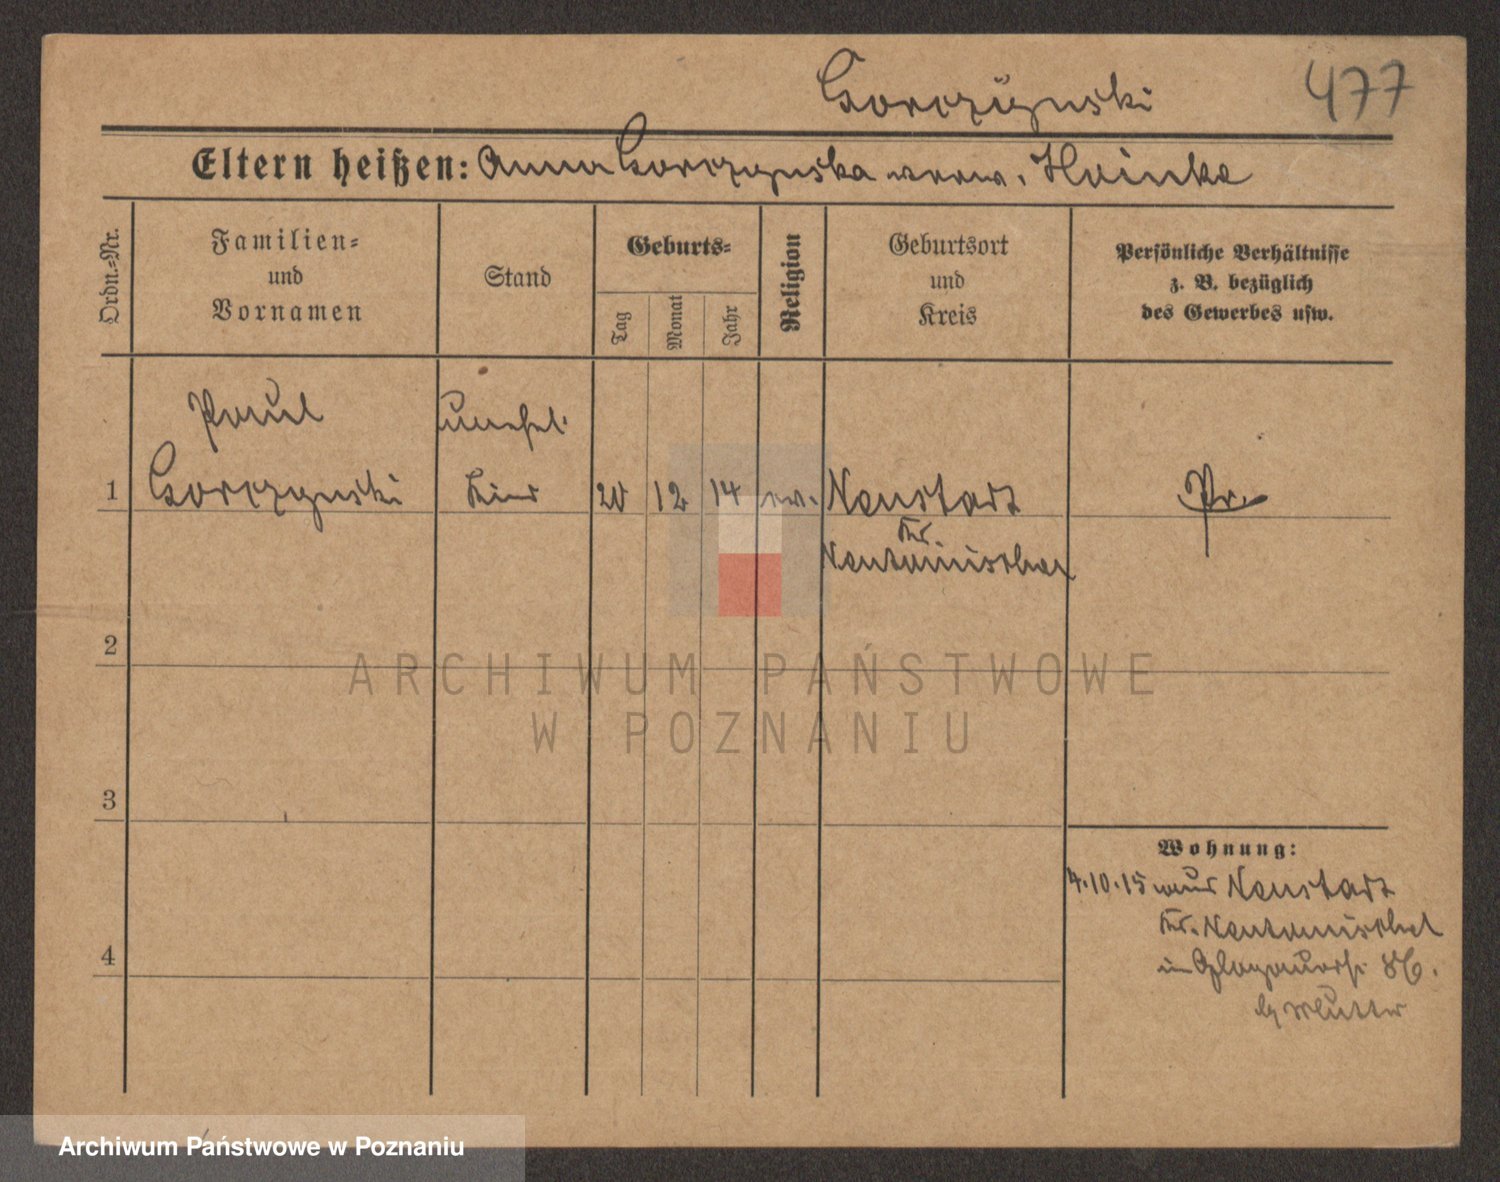 Gorczÿnski 477
Eltern heißen: Anna Gorczynska verw. Heinke
Ordn.-Nr.
Familien-
und
Vornamen
Stand
Geburts-
Tag
Monat
Jahr
Religion
Geburtsort
und
Kreis
Persönliche Verhältnisse
z. B. bezüglich
des Gewerbes usw.
Paul unehel.
1 Gorczynski Kind 20 12 14 ev. Neustadt Pr.
Kr.
Neutomischel
2
ARCHIWUM PAŃSTWOWE
W POZNANIU
3
Wohnung:
4.10.15 aus Neustadt
Kr. Neutomischel
in Glogauerstr.
Mutter
4
Archiwum Państwowe w Poznaniu